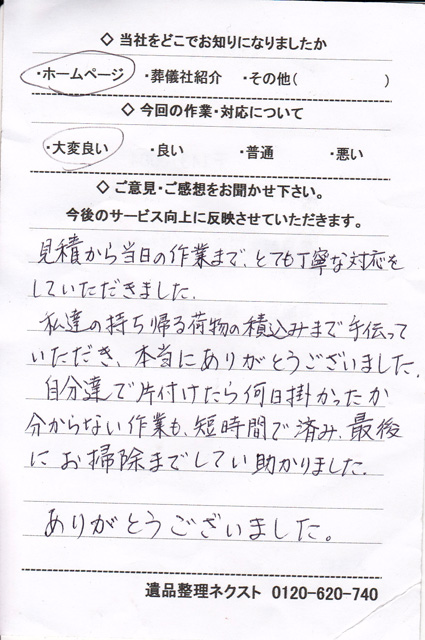 ◇ 当社をどこでお知りになりましたか
・ホームページ ・葬儀社紹介 ・その他( )
◇ 今回の作業・対応について
・大変良い ・良い ・普通 ・悪い
◇ ご意見・ご感想をお聞かせ下さい。
今後のサービス向上に反映させていただきます。
見積から当日の作業まで、とても丁寧な対応を
していただきました.
私達の持ち帰る荷物の積込みまで手伝って
いただき、本当にありがとうございました.
自分達で片付けたら何日掛かったか
分からない作業も、短時間で済み、最後
にお掃除までしてい助かりました.
ありがとうございました。
遺品整理ネクスト 0120-620-740